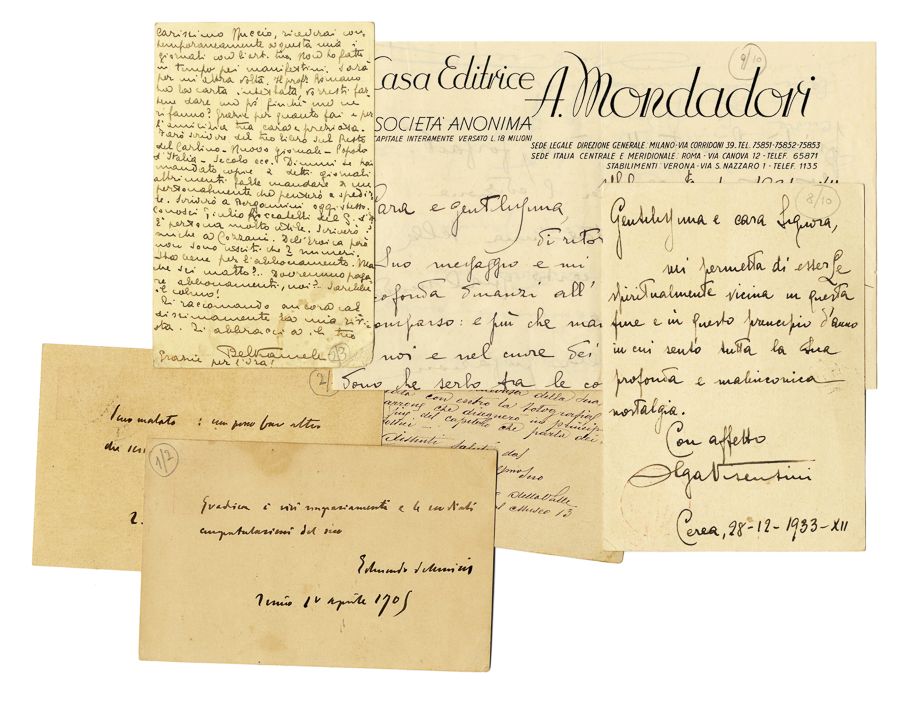 Carissimo Nuccio, riceverai con-
temporaneamente a questa mia i
giornali con l'art. tuo. Non ho fatto
in tempo pei manifestini. Sarà
per un'altra volta. Il prof. Romano
ha la carta intestata, vorresti far
tene dare un po' finché me ne
rifanno? Grazie per quanto fai e per
l'amicizia tua cara e preziosa.
Farò scrivere del tuo libro sul Resto
del Carlino - Nuovo giornale - Popolo
d'Italia - Secolo ecc. Dimmi se hai
mandato copie a detti giornali
altrimenti falle mandare a me
personalmente che penserò a spedir-
le. Scriverò a Bergamini oggi stesso.
Conosci Giulio
È persona molto utile. Scriverò
anche a Cozzani. Dell'Eroica però
non sono usciti che 2 numeri.
Sta bene per l'abbonamento. Ma
che sei matto?.. Dovremmo paga
re abbonamenti, noi? Sarebbe
il colmo!
Ti raccomando ancora cal
dissimamente la mia rivi-
sta. Ti abbraccia il tuo
Beltramelli
Grazie per l'Ora!
13
9/10
Casa Editrice A. Mondadori
SOCIETÀ ANONIMA
CAPITALE INTERAMENTE VERSATO L. 18 MILIONI
SEDE LEGALE DIREZIONE GENERALE, MILANO·VIA CORRIDONI 39, TEL. 75851-75852-75853
SEDE ITALIA CENTRALE E MERIDIONALE: ROMA·VIA CANOVA 12·TELEF. 65871
STABILIMENTI: VERONA·VIA S. NAZZARO 1·TELEF. 1135
Cara e gentilissima,
di ritor
Suo messaggio e mi
profonda dinanzi all'
scomparso: e più che mai
noi e nel cuore dei
dono che serbo fra le co
2
8/10
Gentilissima e cara Signora,
mi permetta di esserLe
spiritualmente vicina in questa
fine e in questo principio d'anno
in cui sento tutta la Sua
profonda e malinconica
nostalgia.
Con affetto
Olga Visentini
Cerea, 28-12-1933-XII
della sua
con entro la fotografia
che disegnerò
del capitolo che parla dei
Distinti saluti dal
della Valle
Museo 13
Sono malato: un
1/2
Gradisca i vivi ringraziamenti e le cordiali
congratulazioni del suo
Edmondo De Amicis
Torino 1° aprile 1905